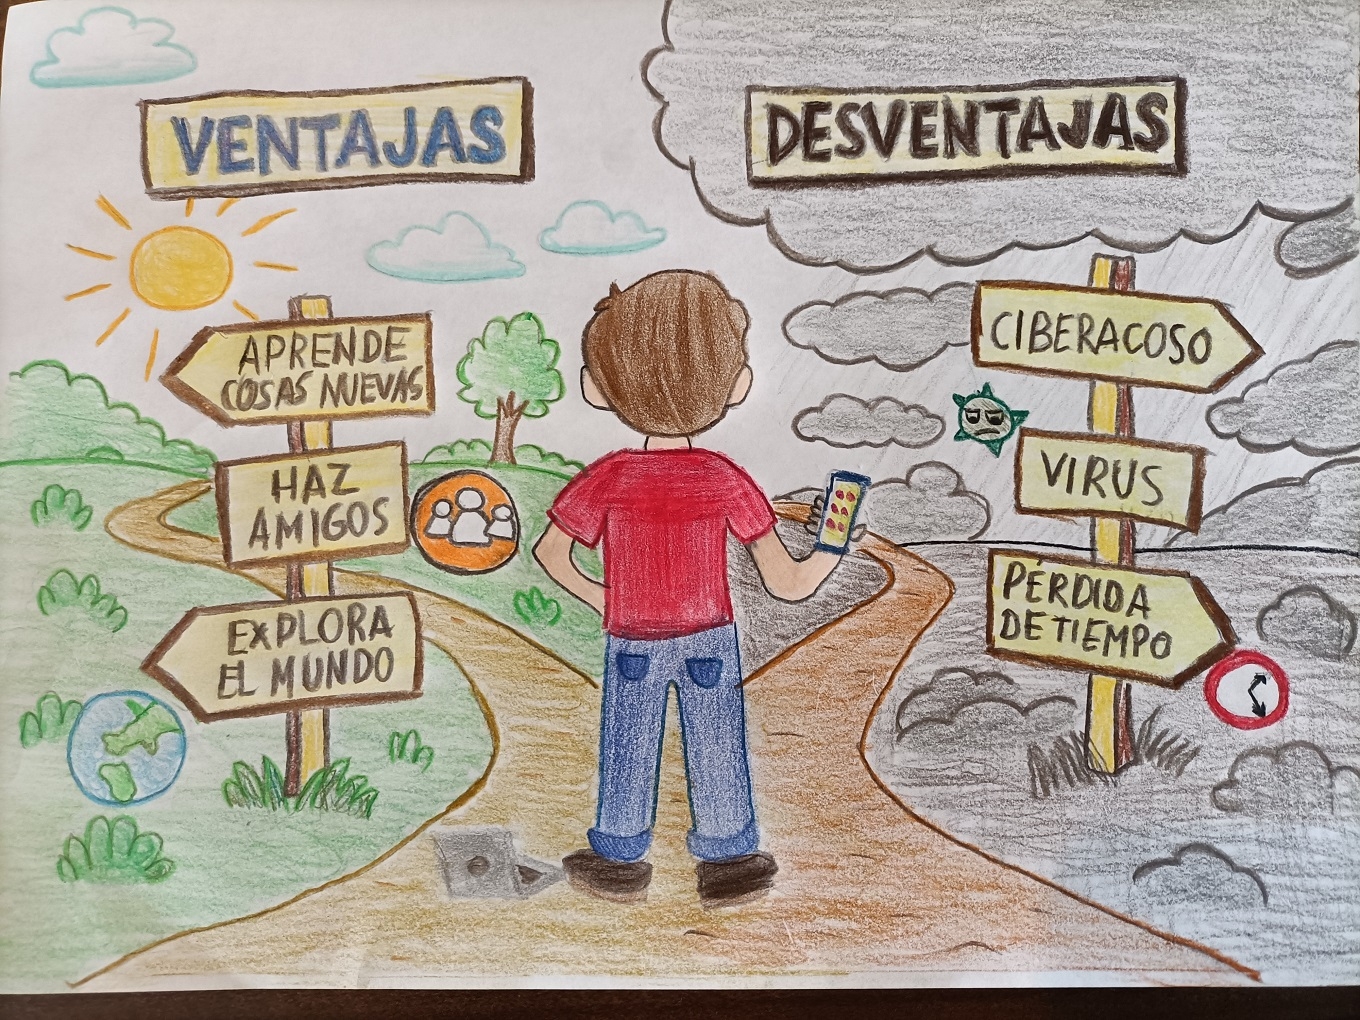 VENTAJAS
DESVENTAJAS
APRENDE
COSAS NUEVAS
HAZ
AMIGOS
EXPLORA
EL MUNDO
CIBERACOSO
VIRUS
PÉRDIDA
DE TIEMPO